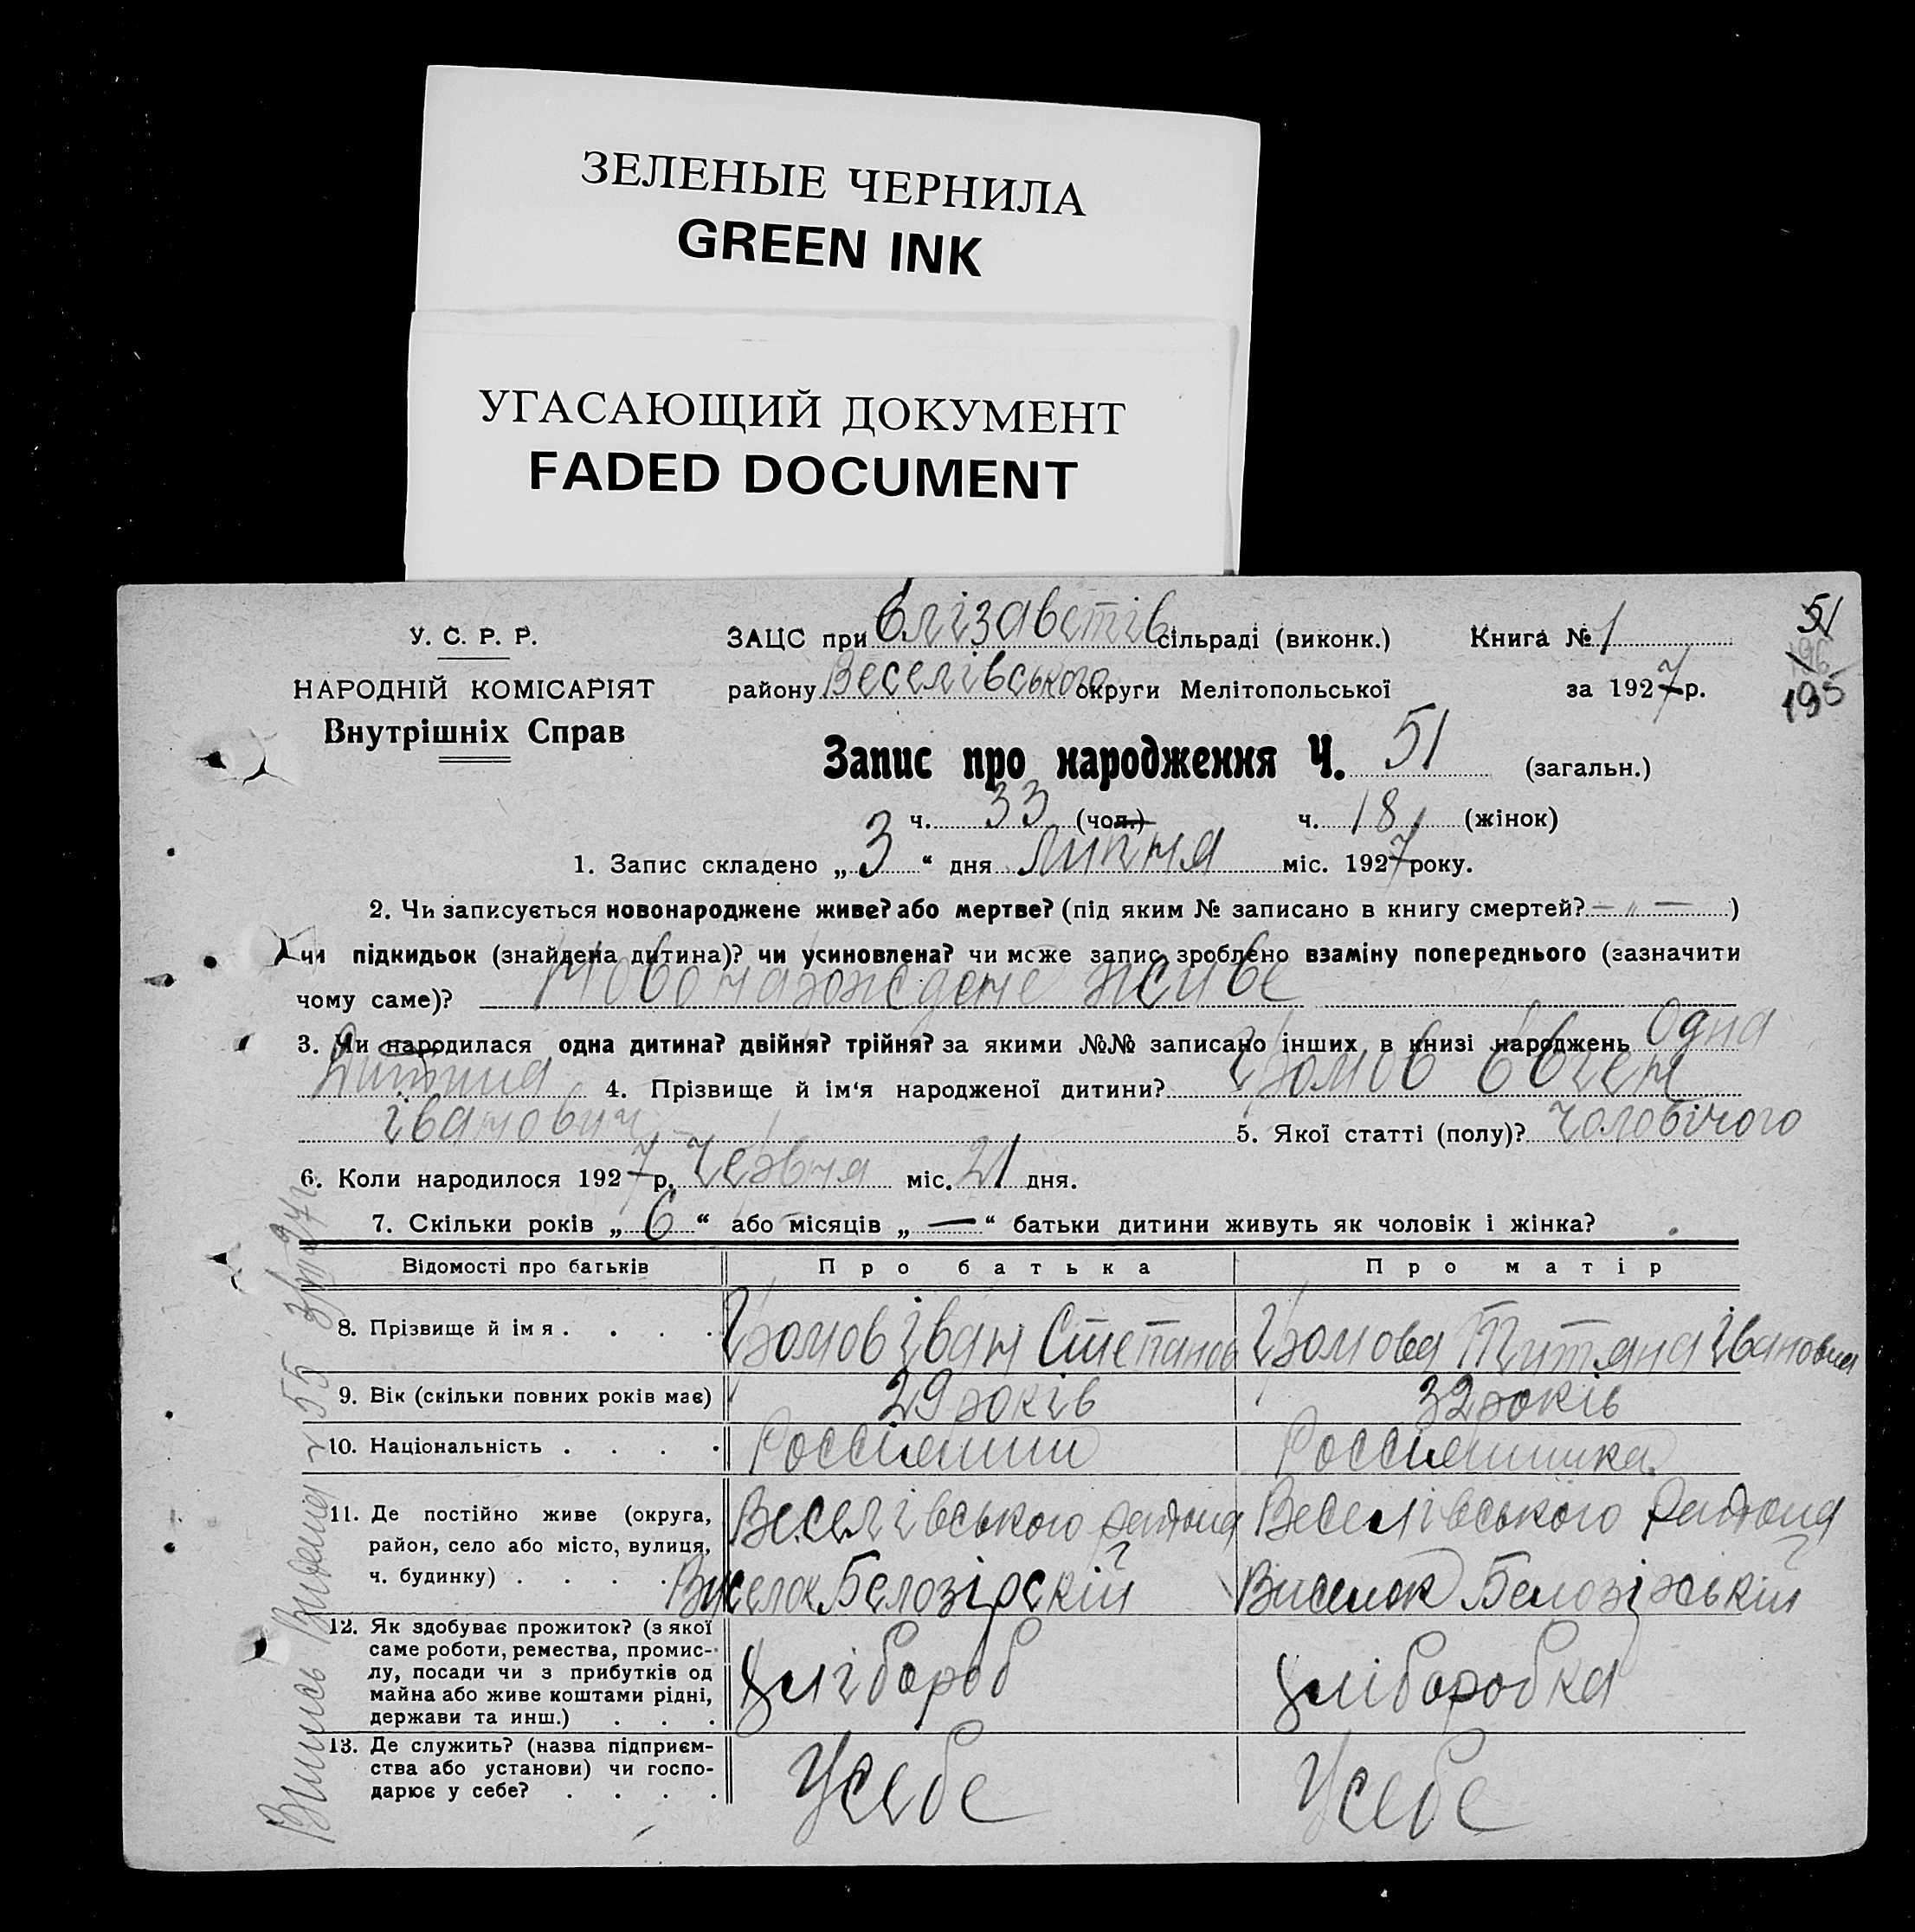 ЗЕЛЕНЫЕ ЧЕРНИЛА
GREEN INK
УГАСАЮЩИЙ ДОКУМЕНТ
FADED DOCUMENT
У. С. Р. Р.
НАРОДНІЙ КОМІСАРІЯТ
Внутрішніх Справ
ЗАЦС при Єлізаветів сільраді (виконк.) Книга № 1
51
96
195
району Веселівського округи Мелітопольської за 1927 р.
Запис про народження Ч. 51 (загальн.)
ч. 33 (чол.) ч. 18 (жінок)
1. Запис складено „ 3 “ дня Липня міс. 1927 року.
2. Чи записується новонароджене живе? або мертве? (під яким № записано в книгу смертей? — „ — )
чи підкидьок (знайдена дитина)? чи усиновлена? чи може запис зроблено взаміну попереднього (зазначити
чому саме)? Новонарождене живе
3. Чи народилася одна дитина? двійня? трійня? за якими №№ записано інших в книзі народжень Одна
Дитина 4. Прізвище й ім‘я народженої дитини? Громов Євген
Іванович 5. Якої статті (полу)? чоловічого
6. Коли народилося 1927 р. Червня міс. 21 дня.
7. Скільки років „ 6 “ або місяців „ — “ батьки дитини живуть як чоловік і жінка?
Відомості про батьків Про батька Про матір
8. Прізвище й імя . . . . Громов Іван Степанов Громова Титяна Івановна
9. Вік (скільки повних років має) 29 років 32 років
10. Національність . . . . Россіянин Россиянинка
11. Де постійно живе (округа, район, село або місто, вулиця, ч. будинку) . . . .
Веселівського района Веселівського района
Виселок Белозірскій Виселок Белозірський
12. Як здобуває прожиток? (з якої
саме роботи, ремества, промис-
лу, посади чи з прибутків од
майна або живе коштами рідні,
держави та инш.) . . .
Хлібороб Хліборобка
13. Де служить? (назва підприєм-
ства або установи) чи госпо-
дарює у себе? . . . .
Усебе Усебе
Випись Видена 55 27 г